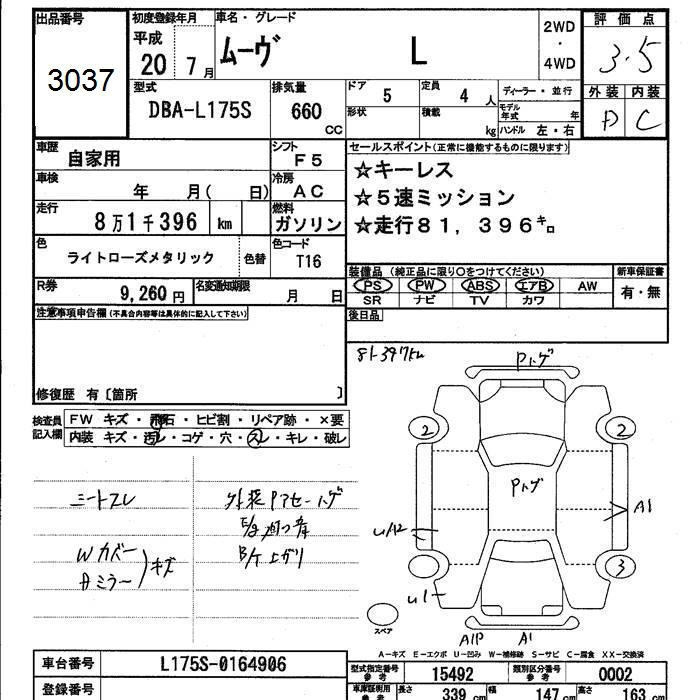 出品番号 3037
初度登録年月 平成 20 7月
車名・グレード ムーヴ L
2WD・4WD
評価点 3.5
型式 DBA-L175S
排気量 660 CC
ドア 5
定員 4 人
形状
積載 kg
ディーラー・並行
モデル年式 年
ハンドル 左・右
外装 内装
D C
車歴 自家用
シフト F5
車検 年 月( 日)
冷房 AC
走行 8万1千396 km
燃料 ガソリン
色 ライトローズメタリック 色替
色コード T16
R券 9,260円
名変通知期限 月 日
セールスポイント(正常に機能するものに限ります)
☆キーレス
☆5速ミッション
☆走行81,396㌔
装備品(純正品に限り○をつけてください)
PS PW ABS エアB AW
SR ナビ TV カワ
新車保証書
有・無
後日品
注意事項申告欄(不具合内容等は具体的に記入して下さい)
修復歴 有〔箇所 〕
検査員記入欄
FW キズ・飛石・ヒビ割・リペア跡・×要
内装 キズ・汚レ・コゲ・穴・スレ・キレ・破レ
81397km
Pトゲ
2
2
Pトゲ
A1
U/12
3
U1
スペア
A1P A1
シートスレ
Wカバー
Aミラー
キズ
B/T 上ガリ
A-キズ E-エクボ U-凹み W-補修跡 S-サビ C-腐食 XX-交換済
車台番号 L175S-0164906
登録番号
型式指定番号参考 15492
類別区分番号参考 0002
車庫証明用参考 長さ 339 cm 幅 147 cm 高さ 163 cm